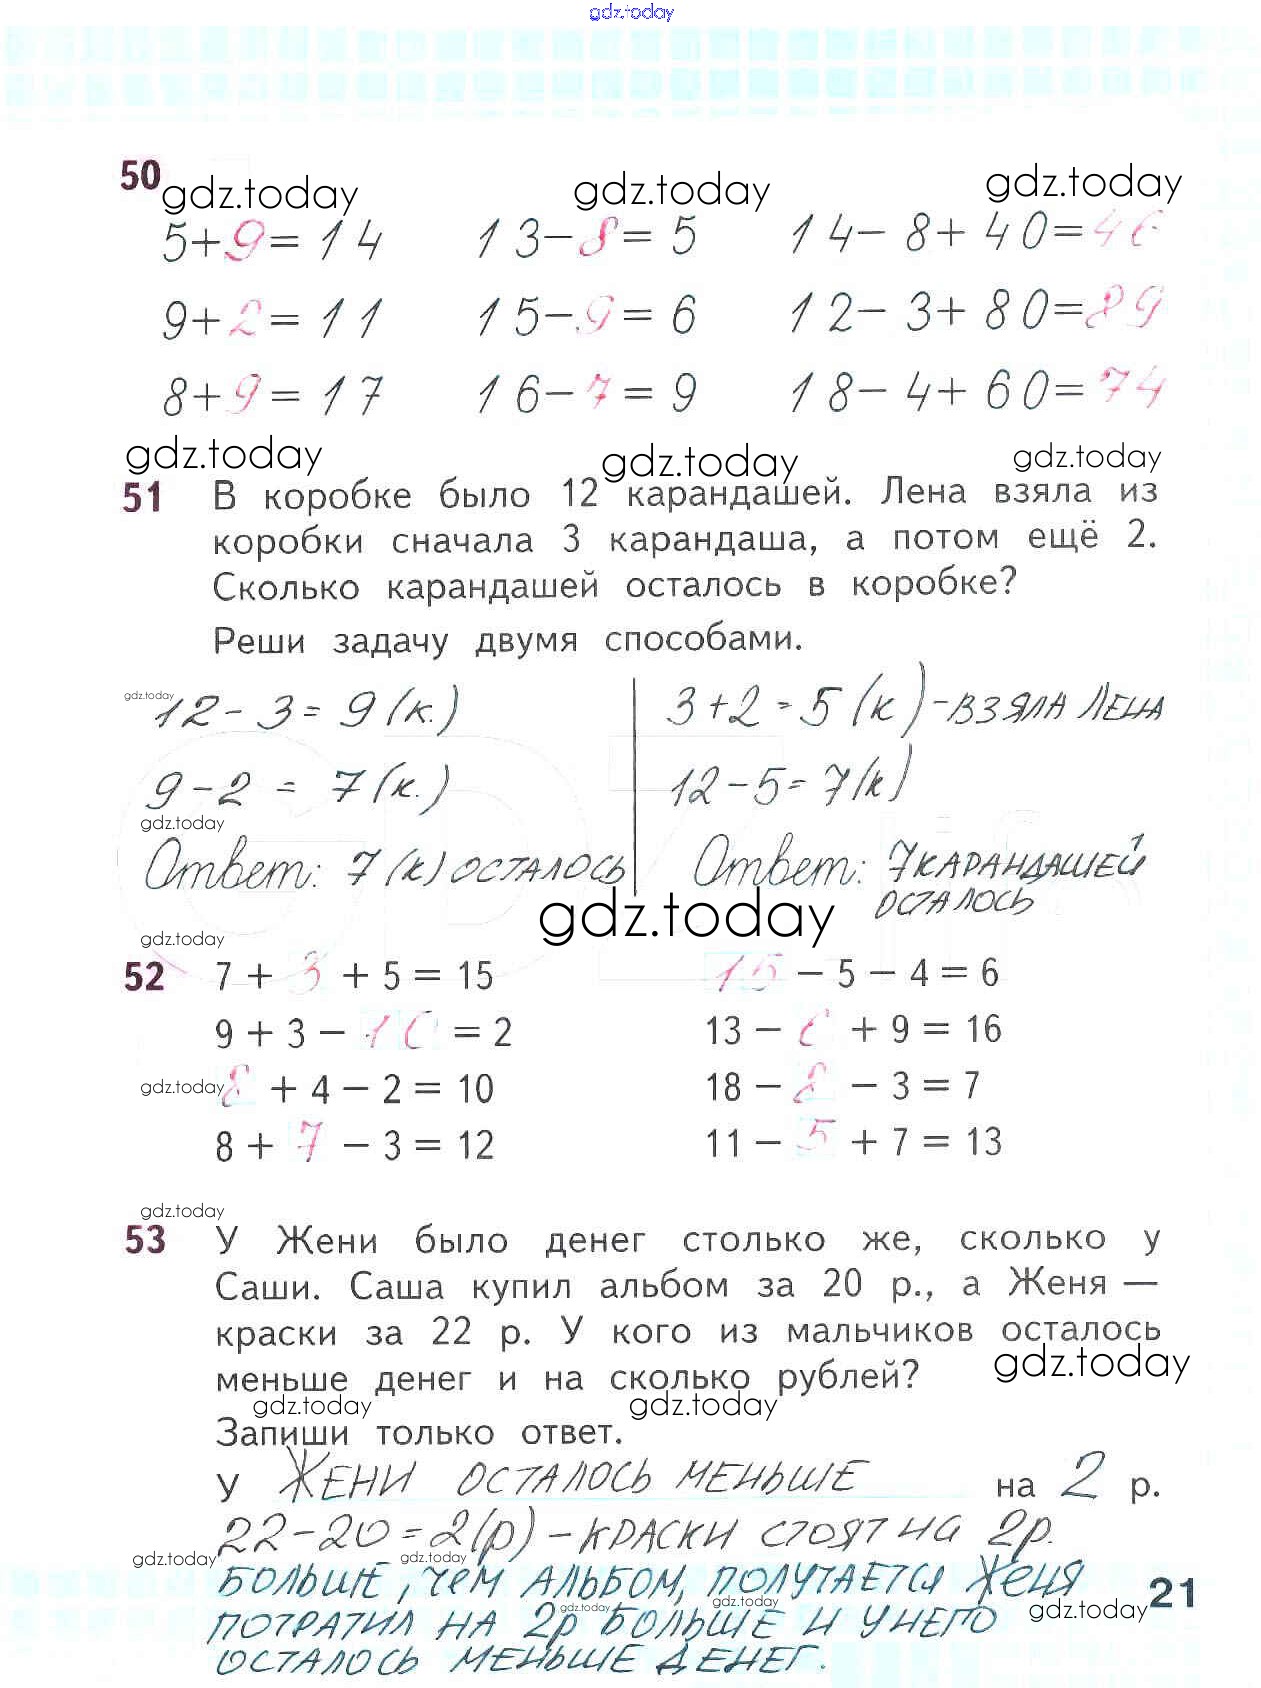 gdz.today
50
gdz.today gdz.today gdz.today
5+9=14 13-8=5 14-8+40=46
9+2=11 15-9=6 12-3+80=89
8+9=17 16-7=9 18-4+60=74
gdz.today gdz.today gdz.today
51 В коробке было 12 карандашей. Лена взяла из
коробки сначала 3 карандаша, а потом ещё 2.
Сколько карандашей осталось в коробке?
Реши задачу двумя способами.
gdz.today
12-3=9(к.) 3+2=5(к)-ВЗЯЛА ЛЕНА
9-2=7(к.) 12-5=7(к)
gdz.today
Ответ: 7(к) ОСТАЛОСЬ Ответ: 7 КАРАНДАШЕЙ
ОСТАЛОСЬ
gdz.today
gdz.today
52 7 + 3 + 5 = 15 15 − 5 − 4 = 6
9 + 3 − 10 = 2 13 − 6 + 9 = 16
gdz.today
8 + 4 − 2 = 10 18 − 8 − 3 = 7
8 + 7 − 3 = 12 11 − 5 + 7 = 13
gdz.today
53 У Жени было денег столько же, сколько у
Саши. Саша купил альбом за 20 р., а Женя —
краски за 22 р. У кого из мальчиков осталось
gdz.today
меньше денег и на сколько рублей?
gdz.today gdz.today
Запиши только ответ.
У ЖЕНИ ОСТАЛОСЬ МЕНЬШЕ на 2 р.
22-20=2(р)-КРАСКИ СТОЯТ НА 2р.
gdz.today gdz.today
БОЛЬШЕ, ЧЕМ АЛЬБОМ, ПОЛУЧАЕТСЯ ЖЕНЯ 21
gdz.today gdz.today gdz.today
ПОТРАТИЛ НА 2р БОЛЬШЕ И У НЕГО
ОСТАЛОСЬ МЕНЬШЕ ДЕНЕГ.